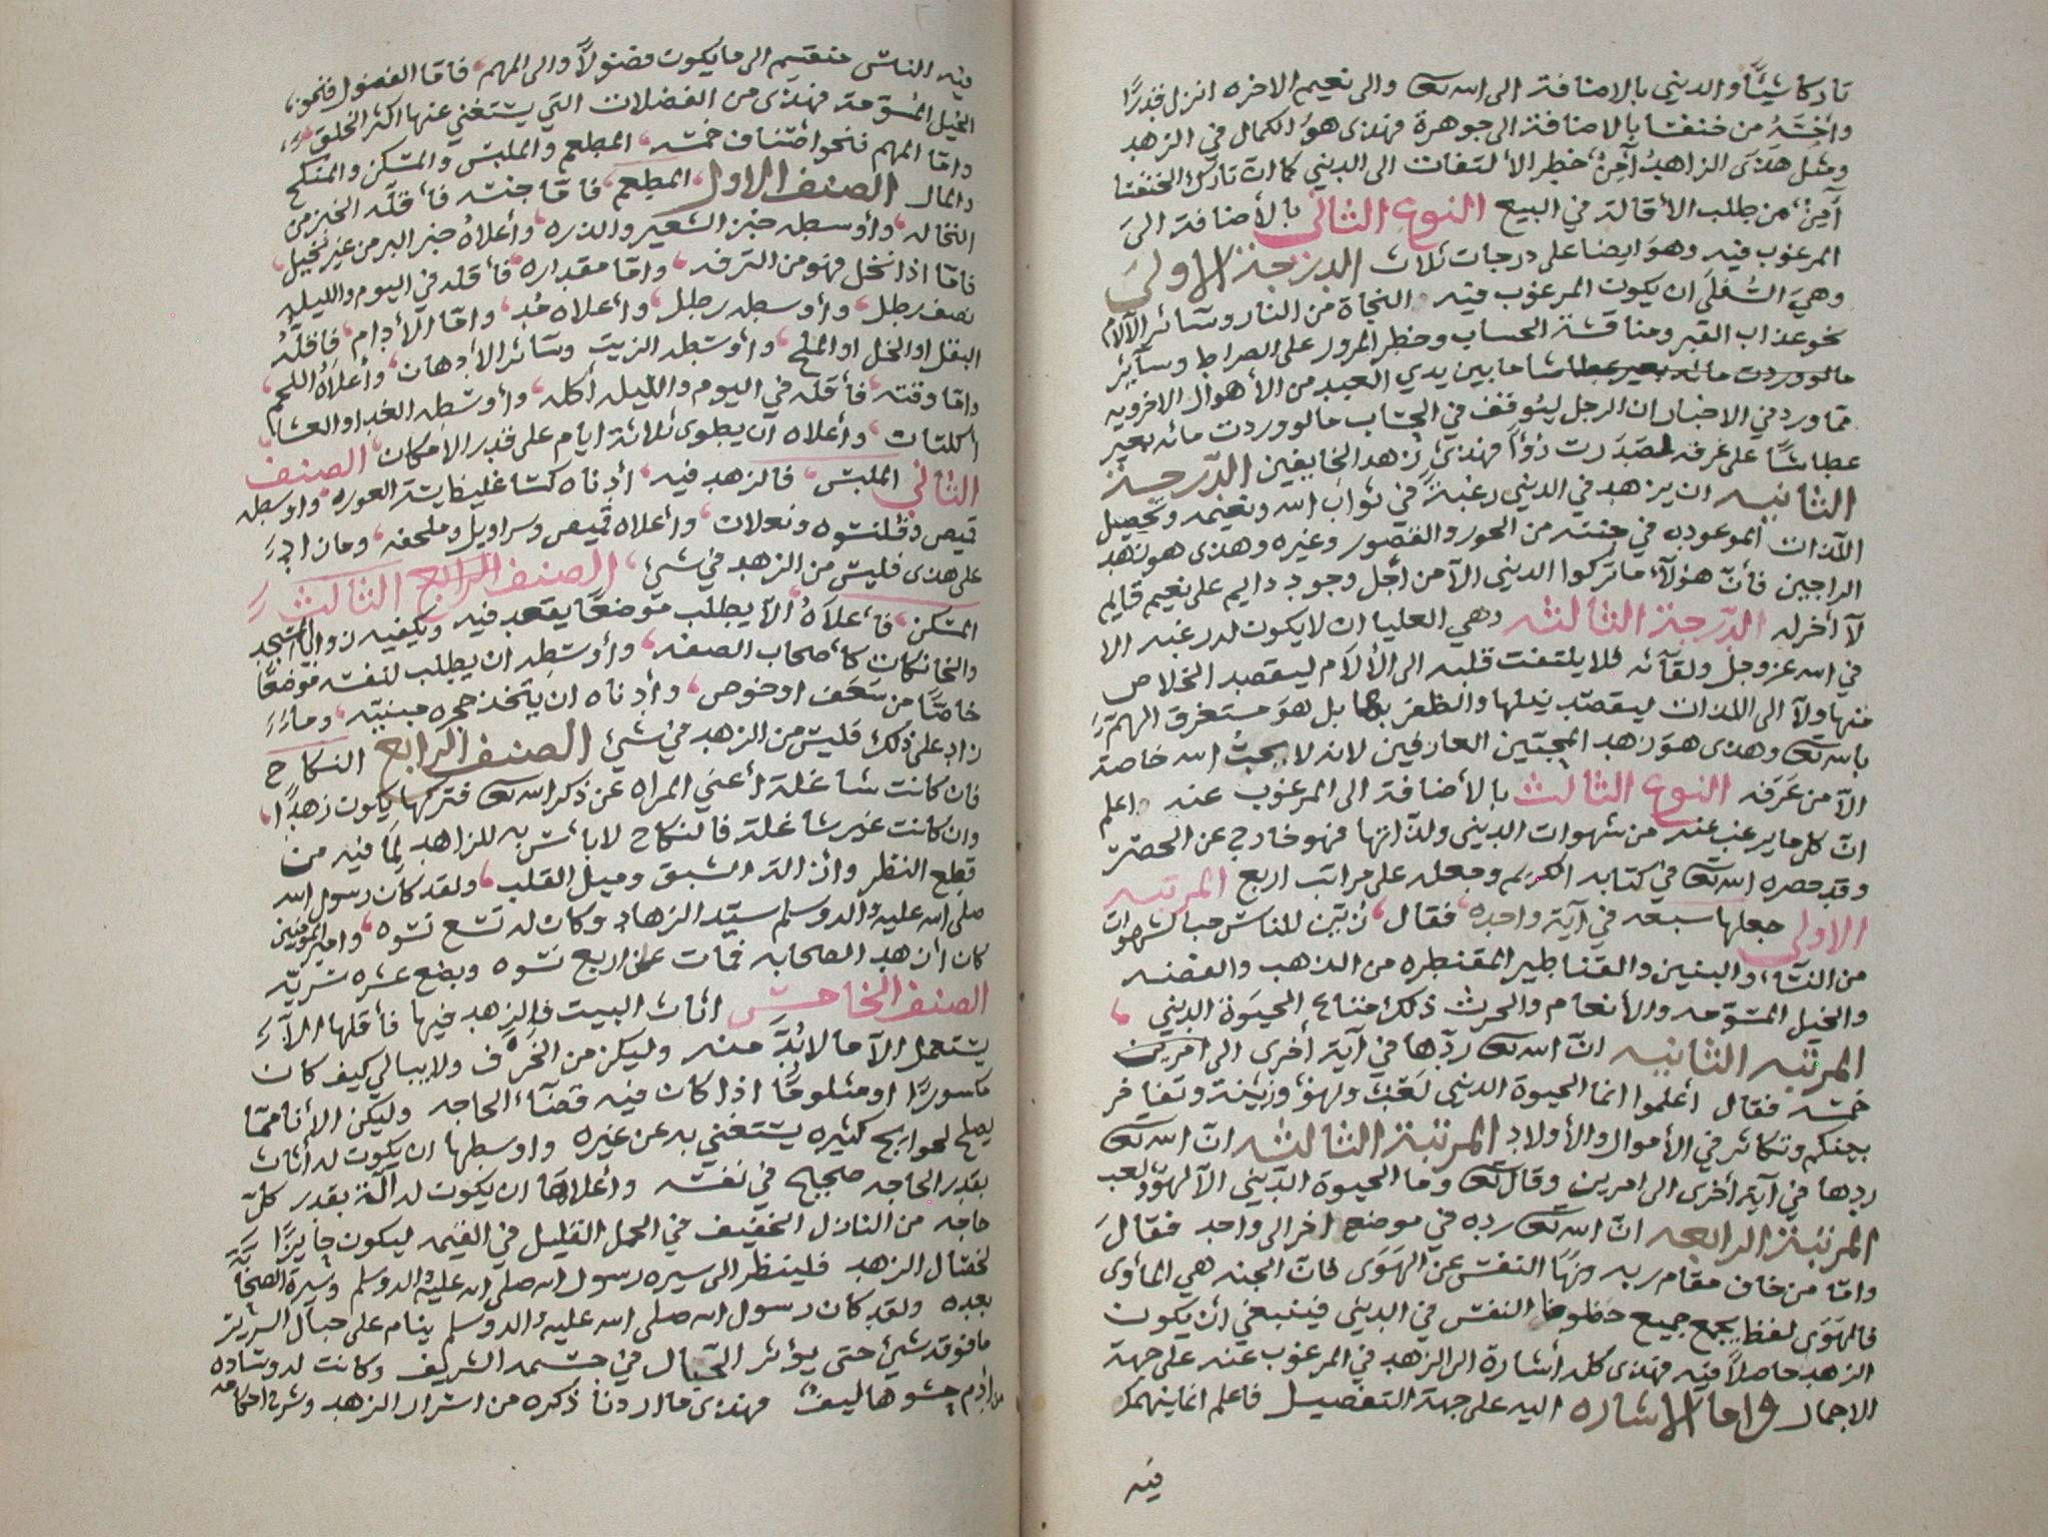 تاركا شيئًا والديني بالاضافة الى الله تعالى والى نعيم الاخره انزل قدرًا
وأخَسُّ من خنفسا بالاضافة الى جوهرة فهذى هوُ الكمال في الزهد
ومثل هَذىَ الزاهدُ آمِنٌ خطر الألتفات الى الديني كما ان تارك الخنفسا
آمِنٌ من طلب الأقالة في البيع النوع الثاني بالأضافة الىَ
المرغوب فيه وهوَ ايضا على درجات ثلاث الدرجة الاولى
وهيَ السُفلَى ان يكون المرغوب فيه النجاة من النار وسَائر الآلام
نحو عذاب القبر ومناقشة الحساب وخطر المرور على الصراط وسآئر
مالو وردت مائه بعير عطاشا ما بين يدي العبد من الأهوال الاخرويه
ممّا ورد في الاخبار ان الرجل ليُوقف في الحِسَاب مالو وردت مائه بعير
عطاشًا على عَرقه لصَدَرت رَوآ فهذى زهد الخايفين الدّرجة
الثانيه ان يزهد في الديني رغبةً في ثواب الله ونعيمه وتحصيل
اللّذات الموعود به في جنته من الحور والقصور وغيره وهذى هو زهد
الراجين فأنّ هؤلآء ما تركوا الديني الآ من أجل وجود دايم على نعيم قايم
لآ أخر له الدّرجة الثالثه وهي العليا ان لا يكون له رغبه الا
في الله عز وجل ولقآئه فلا يلتفت قلبه الى الألآم ليقصد الخلاص
منها ولآ الى اللذات ليقصد نيلها والظفر بها بل هوَ مستغرق الهمّة
بالله تعالى وهذى هوَ زهد المحِبّين العارفين لانه لا يحبُّ الله خاصة
الآ من عَرَفه النوع الثالث بالأضافة الى المرغوب عنه اعلم
انّ كل ما يرغب عنه من شهوات الديني ولذّاتها فهو خارج عن الحصر
وقد حصره الله تعالى في كتابه الكريم وجعله على مراتب اربع المرتبه
الاولى جعلها سبعه في آية واحده فقال زُيّن للناس حب الشهوات
من النسَاء والبنين والقناطير المقنطره من الذهب والفضه
والخيل المسَوّمه والأنعام والحرث ذلك متاع الحيَوة الديني
المرتبه الثانيه انّ الله تعالى ردّها في آية أخرى الى امرين
خمسه فقال أعلموا انما الحيوة الديني لَعِبٌ ولهوٌ وزينة وتفاخر
بينكم وتكاثر في الأموال والأولاد المرتبة الثالثه انّ الله تعالى
ردها في آية أخرى الى امرين وقال تعالى وما الحيوة الدّيني الآ لهوٌ ولعب
المرتبة الرابعه انّ الله تعالى رده في موضع اخر الى واحد فقالَ
وامّا من خاف مقام ربه ونهَا النفس عن الهَوَى فانّ الجنه هي المأوى
فالهَوَى لفظ يجمع جميع حظوظ النفس في الديني فينبغي أن يكون
الزهد حاصلاً فيه فهذى كله أشارة الى الزهد في المرغوب عنه على جهة
الاجمال واما الاشاره اليه على جهة التفصيل فاعلم انما ينهمك
فيه
فيه الناس منقسم الى ما يكون فضولاً والى المهم فامّا الفضول فنحو
الخيل المسَوّمة فهذى من الفضلات التي يستغني عنها اكثر الخلق
وامّا المهم فنحو أصناف خمسَه المطعم والملبس والمسكن والمنكح
والمال الصنف الاول المطعم فامّا جنسه فأقلّه الخبز من
النخاله وأوسطه خبز الشعير والذره وأعلاهُ خبز البر من غير نخيل
فامّا اذا نخل فهو من الترفه وامّا مقداره فأقله في اليوم والليله
نصف رطل وأوسطه رطل وأعلاه مُد وامّا الأدام فاقلّه
البقل او الخل او الملح وأوسَطه الزيت وسَائر الأدهان وأعلاهُ اللحم
وامّا وقته فأقله في اليوم والليله أكله وأوسَطه الغدا والعشا
أكلتان وأعلاه ان يطوى ثلاثة ايام على قدر الأمكان الصنف
الثاني الملبس فالزهد فيه أدناه كسَا غليظا يستر العوره واوسطه
قميص وقلنسُوه ونعلان وأعلاه قميص وسراويل وملحفه وما زاد
على هذى فليسَ من الزهد في شيءٍ الصنف الرابع الثالث
المسكن فأعلاهُ الآ يطلب موضعًا يقعد فيه ويكفيه زوايا المسجد
والخانكات كأصحاب الصفه وأوسَطه ان يطلب لنفسه موضعًا
خاصًّا من سَعَف او خوص وأدناه ان يتخذ حجره مبنيّه وما
زاد على ذلك فليسَ من الزهد في شيءٍ الصنف الرابع النكاح
فان كانت شاغلة أعني المراه عن ذكر الله تعالى فتركها يكون زهدًا
وان كانت غير شاغلة فالنكاح لا بأس به للزاهد لِمَا فيه من
قطع النظر وازالة الشبق وميل القلب ولقد كان رسول الله
صلى الله عليه واله وسلم سيّد الزهاد وكان له تسع نسوه وامير المؤمنين
كان أزهد الصحابه فمات عن اربع نسوه وبضع عشره سُرّيّه
الصنف الخامس اثاث البيت فالزهد فيها فأقلها الآ
يستعمل الآ ما لا بُدّ منه وليكن من الخزَف ولا يبالي كيف كان
مكسورًا او مثلومًا اذا كان فيه قضآء الحاجه وليكن الأنا ممّا
يصلح لحوايج كثيره يستغني به عن غيره واوسطها ان يكون له أثاث
بقدر الحاجه صحيح في نفسه وأعلاها ان يكون له آلة بقدر كلّ
حاجه من النازل الخفيف في الحمل القليل في القيمه ليكون حايزًا
لخصَال الزهد فلينظر الى سيره رسول الله صلى الله عليه واله وسلم وسيرة الصحابة
بعده ولقد كان رسول الله صلى الله عليه واله وسلم ينام على حبال السرير
ما فوقه شيءٌ حتى يؤثر الحبال في جسمه الشريف وكانت له وسَاده
من أدَم حشوها ليفٌ فهذى ما اردنا ذكره من اسرار الزهد وشرح احكامه